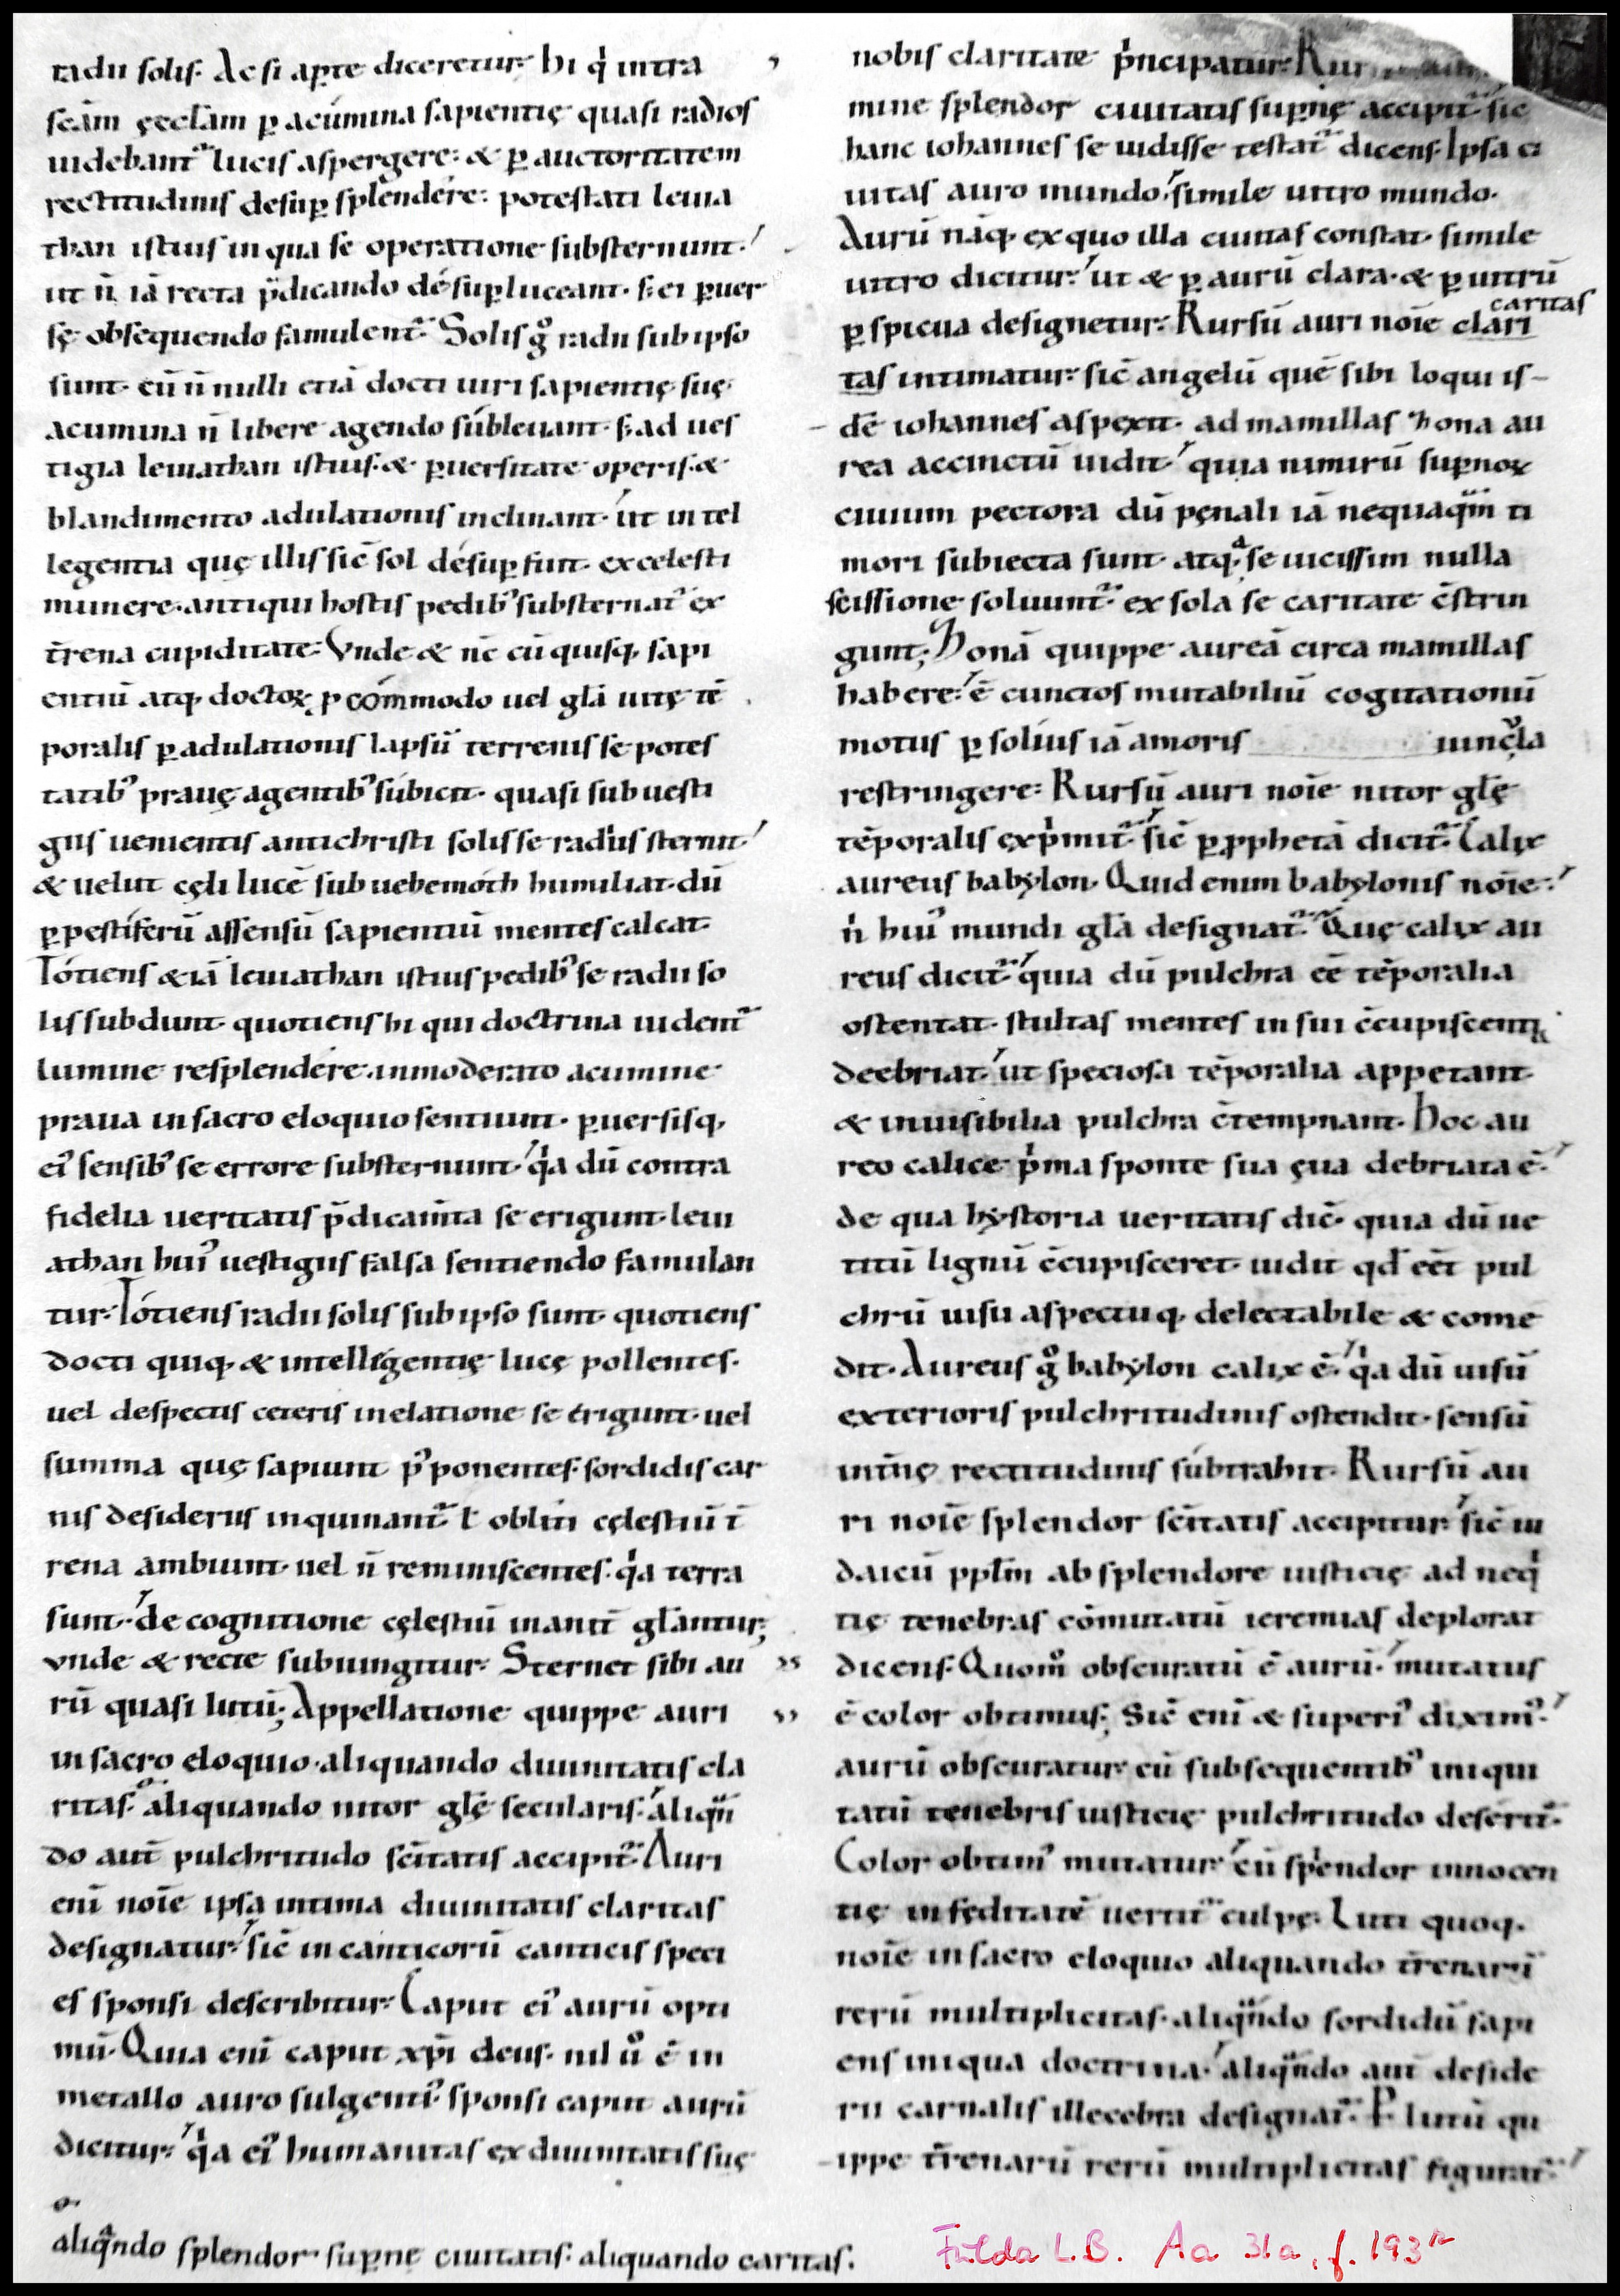 radii solis. Ac si ap̲te diceretur. hi q' intra
sc̄am ęccl̄am p̲ acumina sapientię quasi radios
uidebant᷑ lucis aspergere. & p̲ auctoritatem
rectitudinis desup̲ splendere. potestati leuia
than istius in qua se operatione substernunt.
ut n̄ iā recta p̄dicando desup̲ luceant. s; ei p̲uer
sę obsequendo famulent᷑. Solis gͦ radii sub ipso
sunt. cū ñnulli etiā docti uiri sapientię suę
acumina n̄ libere agendo subleuant. s; ad ues
tigia leuiathan istius. & p̲uersitate operis. &
blandimento adulationis inclinant. ut intel
legentia quę illis sic̄ sol desup̲ fuit. ex celesti
munere. antiqui hostis pedib' substernat᷑ ex
t̄rena cupiditate. Vnde & nc̄ cū quisq; sapi
entiū atq; doctoꝝ p commodo uel gl̄a uitę tē
poralis p̲ adulationis lapsū terrenis se potes
tatib' prauę agentib' subicit. quasi sub uesti
giis uenientis antichristi solis se radius sternit.
& uelut cęli lucē sub uehemoth humiliat. dū
p̲ pestiferū assensū sapientiū mentes calcat.
Totiens & iā leuiathan istius pedib' se radii so
lis subdunt. quotiens hi qui doctrina uident᷑
lumine resplendere. inmoderato acumine
praua in sacro eloquio sentiunt. p̲uersisq;
ei' sensib' se errore substernunt. q'a dū contra
fidelia ueritatis p̄dicam̄ta se erigunt. leui
athan hui' uestigiis falsa sentiendo famulan
tur. Totiens radii solis sub ipso sunt. quotiens
docti quiq; & intellegentię lucę pollentes.
uel despectis ceteris in elatione se erigunt. uel
summa quę sapiunt p'ponentes. sordidis car
nis desideriis inquinant᷑. ł obliti cęlestiū t̄
rena ambiunt. uel n̄ reminiscentes. q'a terra
sunt. de cognitione cęlestiū inanit̄ gl̄antur;
vnde & recte subiungitur. Sternet sibi au
rū quasi lutū; Appellatione quippe auri
in sacro eloquio. aliquando diuinitatis cla
ritas. aliquando nitor gl̄ę secularis. aliqn̄
do aut̄ pulchritudo sc̄itatis accipit᷑. Auri
eni noīe ipsa intima diuinitatis claritas
designatur. sic̄ in canticorū canticis speci
es sponsi describitur. Caput ei' aurū opti
mū. Quia eni caput xp̄i deus. nil ů ē in
metallo auro fulgenti'. sponsi caput aurū
dicitur. q'a ei' humanitas ex diuinitatis suę
aliqᵃndo splendor sup̲nę ciuitatis. aliquando caritas.
nobis claritate p'ncipatur. Rur
mine splendor ciuitatis sup̲nę accipit᷑. sic̄
hanc iohannes se uidisse testat᷑ dicens. Ipsa ci
uitas auro mundo. simile uitro mundo.
Aurū nāq; ex quo illa ciuitas constat. simile
uitro dicitur. ut & p̲ aurū clara. & p̲ uitrū
caritas
p̲spicua designetur. Rursū auri noīe clari
tas intimatur. sic̄ angelū quē sibi loqui is-
dē iohannes aspexit. ad mamillas zona au
rea accinctū uidit. quia nimirū sup̲noꝝ
ciuium pectora dū pęnali iā nequaqᵃm ti
mori subiecta sunt. atq; ᵃ se uicissim nulla
scissione soluunt᷑. ex sola se caritate c̄strin
gunt; Zonā quippe aureā circa mamillas
habere. ē cunctos mutabiliū cogitationū
motus p̲ solius iā amoris uinc̊la
restringere. Rursū auri noīe nitor gl̄ę
tēporalis exp'mit᷑. sic̄ p̲ pphetā dicit᷑. Calix
aureus babẏlon. Quid enim babẏlonis noīe.
n' hui' mundi gl̄a designat᷑. Quę calix au
reus dicit᷑. quia dū pulchra eē tēporalia
ostentat. stultas mentes in sui c̄cupiscentia
debriat. ut speciosa tēporalia appetant.
& inuisibilia pulchra c̄tempnant. Hoc au
reo calice p'ma sponte sua ęua debriata ē.
de qua hẏstoria ueritatis dic̄. quia dū ue
titū lignū c̄cupisceret. uidit qd̄ eēt pul
chrū uisu aspectuq; delectabile & come
dit. Aureus gͦ babẏlon calix ē. q'a dū uisū
exterioris pulchritudinis ostendit. sensū
int̄nę rectitudinis subtrahit. Rursū au
ri noīe splendor sc̄itatis accipitur. sic̄ iu
daicū ppl̄m ab splendore iusticię ad neq'
tię tenebras cōmutatū ieremias deplorat
dicens. Quom̊ obscuratū ē aurū. mutatus
ē color obtimus; Sic̄ eni & superi' diximi'.
aurū obscuratur. cū subsequentib' iniqui
tatū tenebris iusticię pulchritudo deserit᷑.
Color obtim' mutatur. cū splendor innocen
tię in fęditatē uertit᷑ culpę. Luti quoq;
noīe in sacro eloquio aliquando t̄renarū
rerū multiplicitas. aliqᵃndo sordidū sapi
ens iniqua doctrina. aliqᵃndo aut̄ deside
rii carnalis illecebra designat᷑. P̲ lutū qu
ippe t̄renarū rerū multiplicitas figurat᷑.
Fulda L.B. Aa 31a, f. 193ʳ